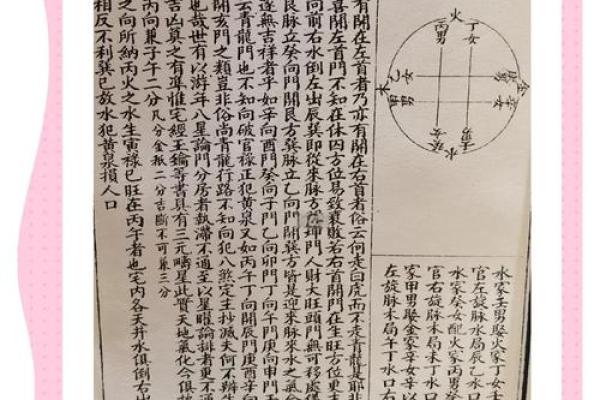 火
丁女
丙男
乙女
木
甲男
辛女
癸女
壬男
水
水家壬男娶火家丁女壬
官左旋脉水局辰乙水口
水家癸女配火家丙男癸
官右旋脉木局未丁水口
家甲男娶金家辛女辛
左旋脉木局午丁水口右
有開在左首者乃亦有開在右首者俗云何走白虎而不走青龍是耶非
喜開左首門不知在休囚方位易致衰敗若右首開門在生旺方位更主
向前右水倒左出辰巽即從來脉方坤門人財大旺頭門無可移處
艮脉立癸向門開艮方巽脉立乙向門開巽方皆是迎來脉來水之氣
遂無吉祥者乎如辛向酉門癸向子門乙向卯門丁向午門庚向申門
云青龍門也不知向破官祿正犯黃泉又如丙午丁向開辰門庚酉辛向
開亥門之類豈非俗尚青龍行路不知向犯八煞定主抄滅夫何不辨生
也哉世有以游年八星論門分房者執滯不通至以星曜論排者更不
吉凶莫之有準惟宅經玉鑰等書具有三元疇星此質天地氣化今俱
丙向兼子午二分凡分金抵二分吉斷不可兼三分
之向所納丙火之水生寅祿巳旺在丙午者也宅內各天井水俱倒右出
相反不利巽巳放水犯黃泉損人口